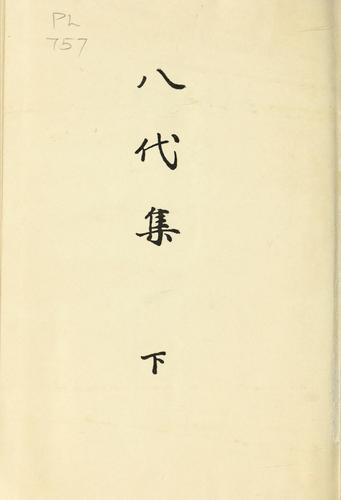 PL
757
八代集
下